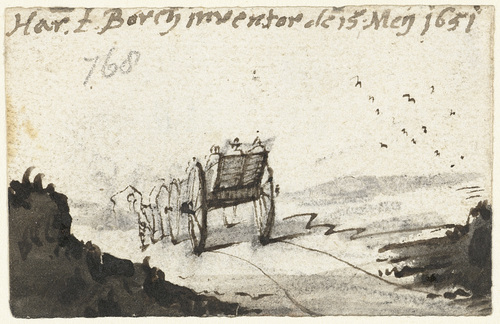 Har. t. Borch inventor de 15 Meij 1651
768